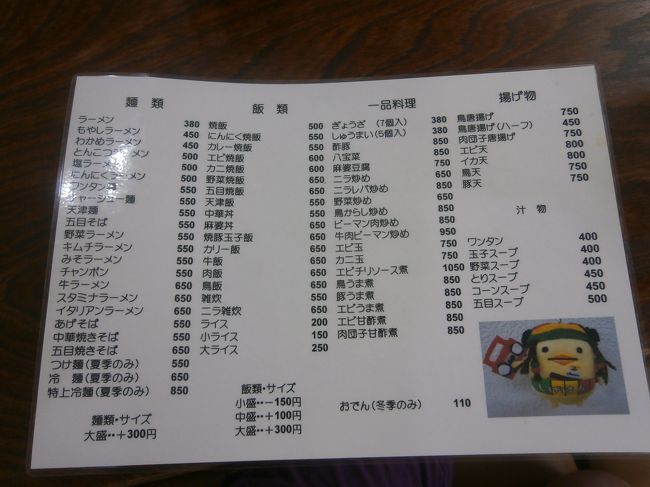 麺　類
ラーメン 380
もやしラーメン 450
わかめラーメン 450
とんこつラーメン 500
塩ラーメン 500
にんにくラーメン 500
ワンタン麺 550
チャーシュー麺 550
天津麺 550
五目そば 550
野菜ラーメン 550
キムチラーメン 550
みそラーメン 550
チャンポン 650
牛ラーメン 650
スタミナラーメン
イタリアンラーメン 650
あげそば
中華焼きそば
五目焼きそば 650
つけ麺(夏季のみ) 550
冷　麺(夏季のみ) 650
特上冷麺(夏季のみ) 850
麺類・サイズ
大盛・・＋300円
飯　類
焼飯 500
にんにく焼飯 550
カレー焼飯 550
エビ焼飯 600
カニ焼飯 600
野菜焼飯
五目焼飯
天津飯 550
中華丼 550
麻婆丼
焼豚玉子飯
カリー飯
牛飯
肉飯
鳥飯
雑炊
ニラ雑炊
ライス 200
小ライス 150
大ライス 250
飯類・サイズ
小盛・・－150円
中盛・・＋100円
大盛・・＋300円
一品料理
ぎょうざ　(7個入) 380
しゅうまい(5個入) 380
酢豚 850
八宝菜 850
麻婆豆腐 650
ニラ炒め 650
ニラレバ炒め
野菜炒め
鳥からし炒め 850
ピーマン肉炒め 850
牛肉ピーマン炒め 950
エビ玉 750
カニ玉 750
エビチリソース煮 1050
鳥うま煮 850
豚うま煮 850
エビうま煮 850
エビ甘酢煮 850
肉団子甘酢煮 850
おでん(冬季のみ)　110
揚げ物
鳥唐揚げ 750
鳥唐揚げ(ハーフ) 450
肉団子唐揚げ 750
エビ天 800
イカ天 800
鳥天 750
豚天 750
汁　物
ワンタン 400
玉子スープ 400
野菜スープ 400
とりスープ 450
コーンスープ 450
五目スープ 500